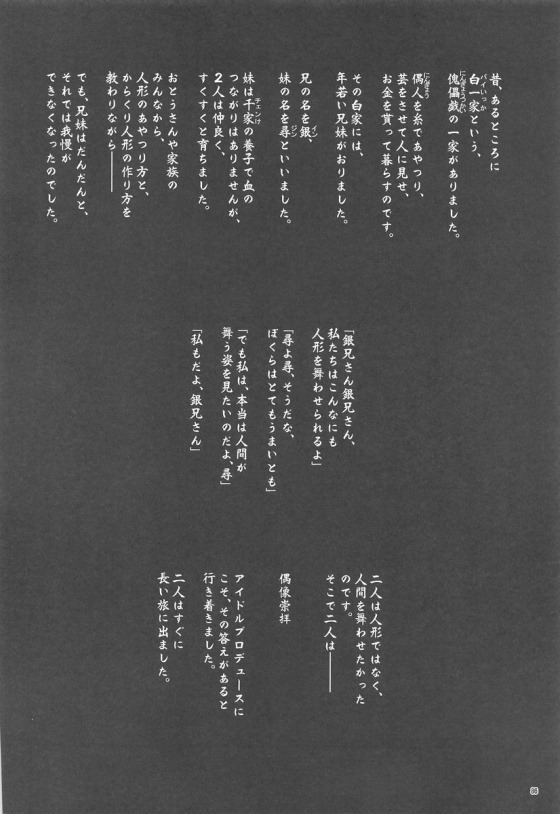 昔、あるところに
白一家という、
傀儡戯の一家がありました。
偶人を糸であやつり、
芸をさせて人に見せ、
お金を貰って暮らすのです。
その白家には、
年若い兄妹がおりました。
兄の名を銀、
妹の名を尋といいました。
妹は千家の養子で血の
つながりはありませんが、
2人は仲良く、
すくすくと育ちました。
おとうさんや家族の
みんなから、
人形のあやつり方と、
からくり人形の作り方を
教わりながら――
でも、兄妹はだんだんと、
それでは我慢が
できなくなったのでした。
「銀兄さん銀兄さん、
私たちはこんなにも
人形を舞わせられるよ」
「尋よ尋、そうだな、
ぼくらはとてもうまいとも」
「でも私は、本当は人間が
舞う姿を見たいのだよ、尋」
「私もだよ、銀兄さん」
二人は人形ではなく、
人間を舞わせたかった
のです。
そこで二人は――
偶像崇拝
アイドルプロデュースに
こそ、その答えがあると
行き着きました。
二人はすぐに
長い旅に出ました。
86